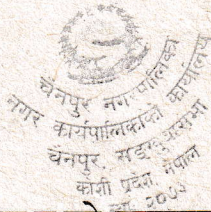 चैनपुर नगरपालिका
नगर कार्यपालिकाको कार्यालय
चैनपुर, सङ्खुवासभा
कोशी प्रदेश, नेपाल
२०७३